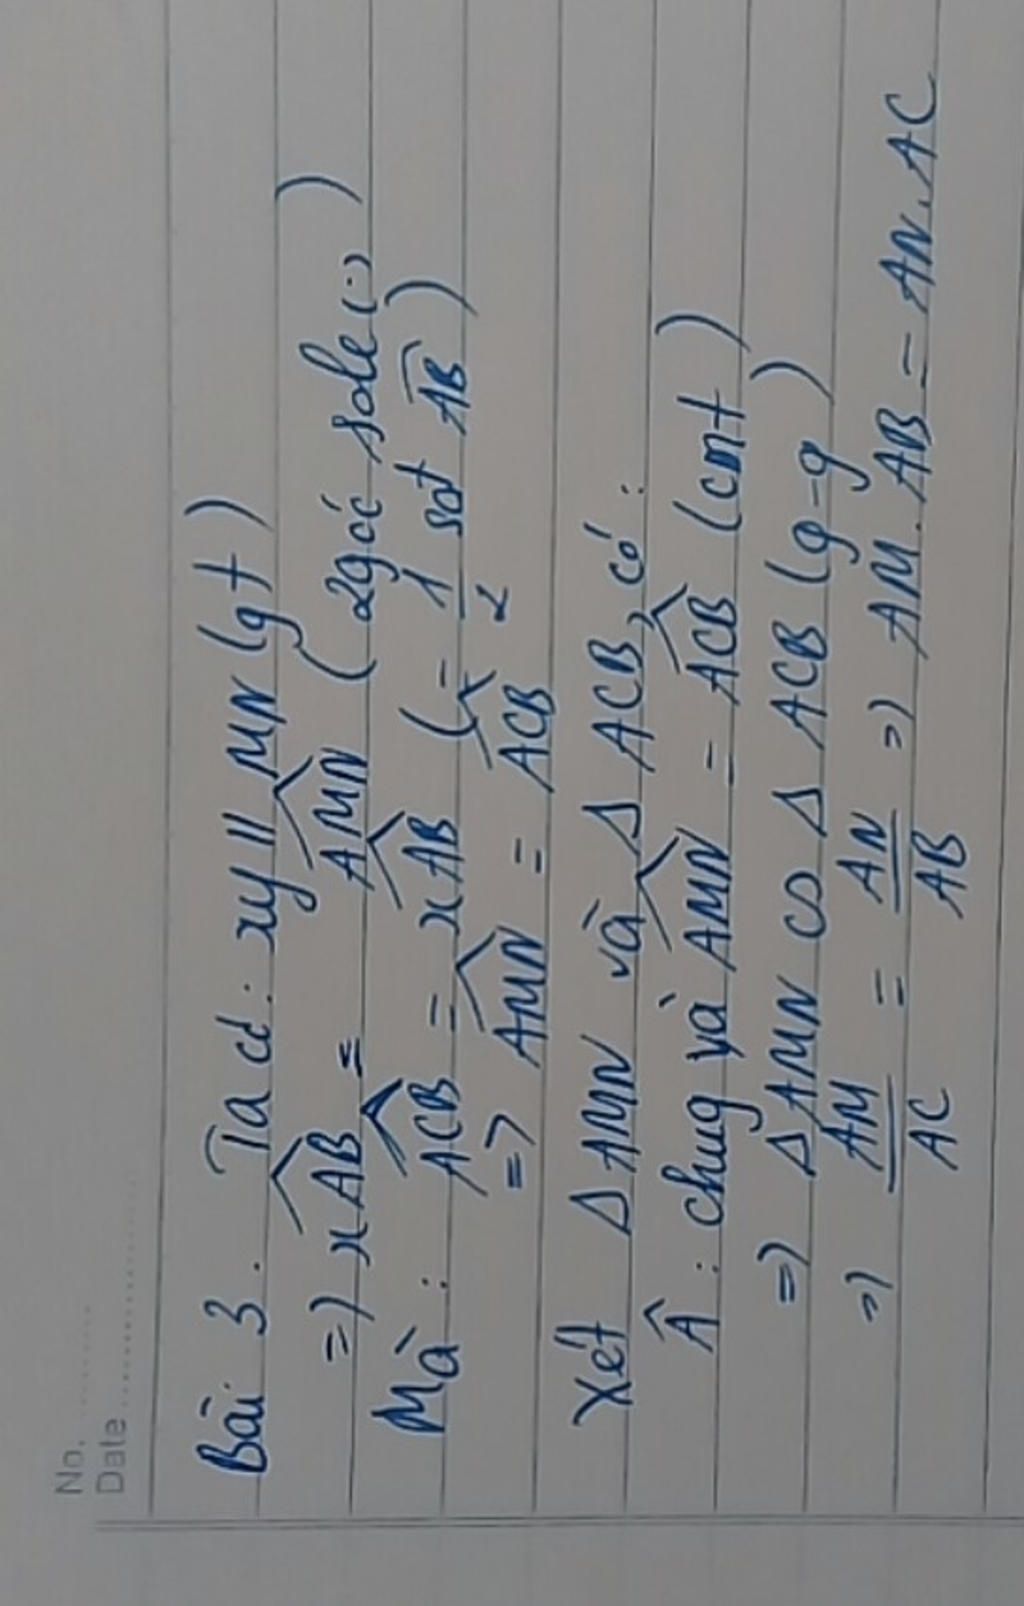 No. ............
Date ....................
Bài 3. Ta có: xy // MN (gt)
=) x\widehat{AB} = \widehat{AMN} (2góc sole (·))
Mà: \widehat{ACB} = \widehat{xAB} (= \frac{1}{2} sđ \overset{\frown}{AB})
=> \widehat{AMN} = \widehat{ACB}
Xét Δ AMN và Δ ACB, có:
\widehat{A}: chung và \widehat{AMN} = \widehat{ACB} (cmt)
=) Δ AMN ᔕ Δ ACB (g-g)
=) \frac{AM}{AC} = \frac{AN}{AB} =) AM. AB = AN. AC